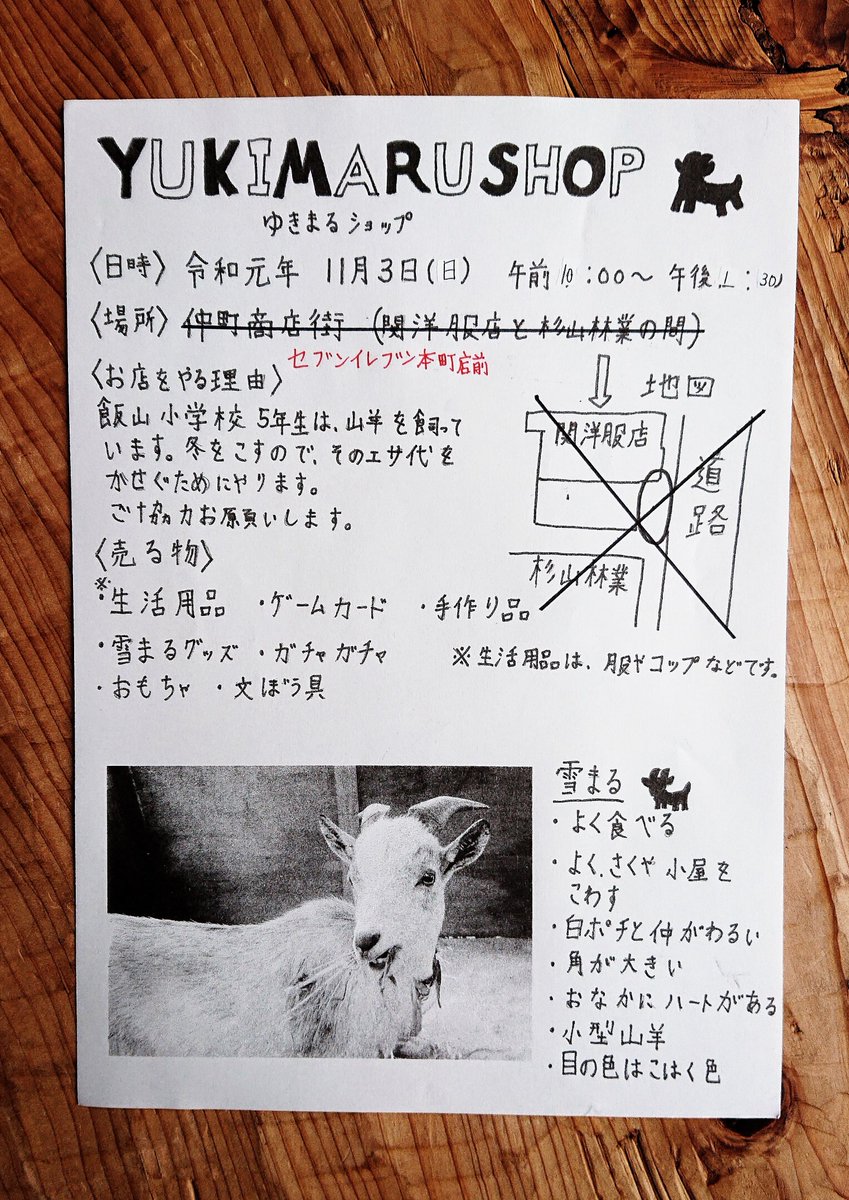 YUKIMARUSHOP
ゆきまるショップ
〈日時〉 令和元年 11月3日(日) 午前10:00〜 午後1:30
〈場所〉 仲町商店街 (関洋服店と杉山林業の間)
セブンイレブン本町店前
〈お店をやる理由〉
飯山小学校 5年生は、山羊を飼って
います。冬をこすので、そのエサ代を
かせぐためにやります。
ご協力お願いします。
地図
関洋服店
道路
杉山林業
〈売る物〉
※・生活用品 ・ゲームカード ・手作り品
・雪まるグッズ ・ガチャガチャ
・おもちゃ ・文ぼう具
※生活用品は、服やコップなどです。
雪まる
・よく食べる
・よく、さくや小屋を
こわす
・白ポチと仲がわるい
・角が大きい
・おなかにハートがある
・小型山羊
・目の色はこはく色